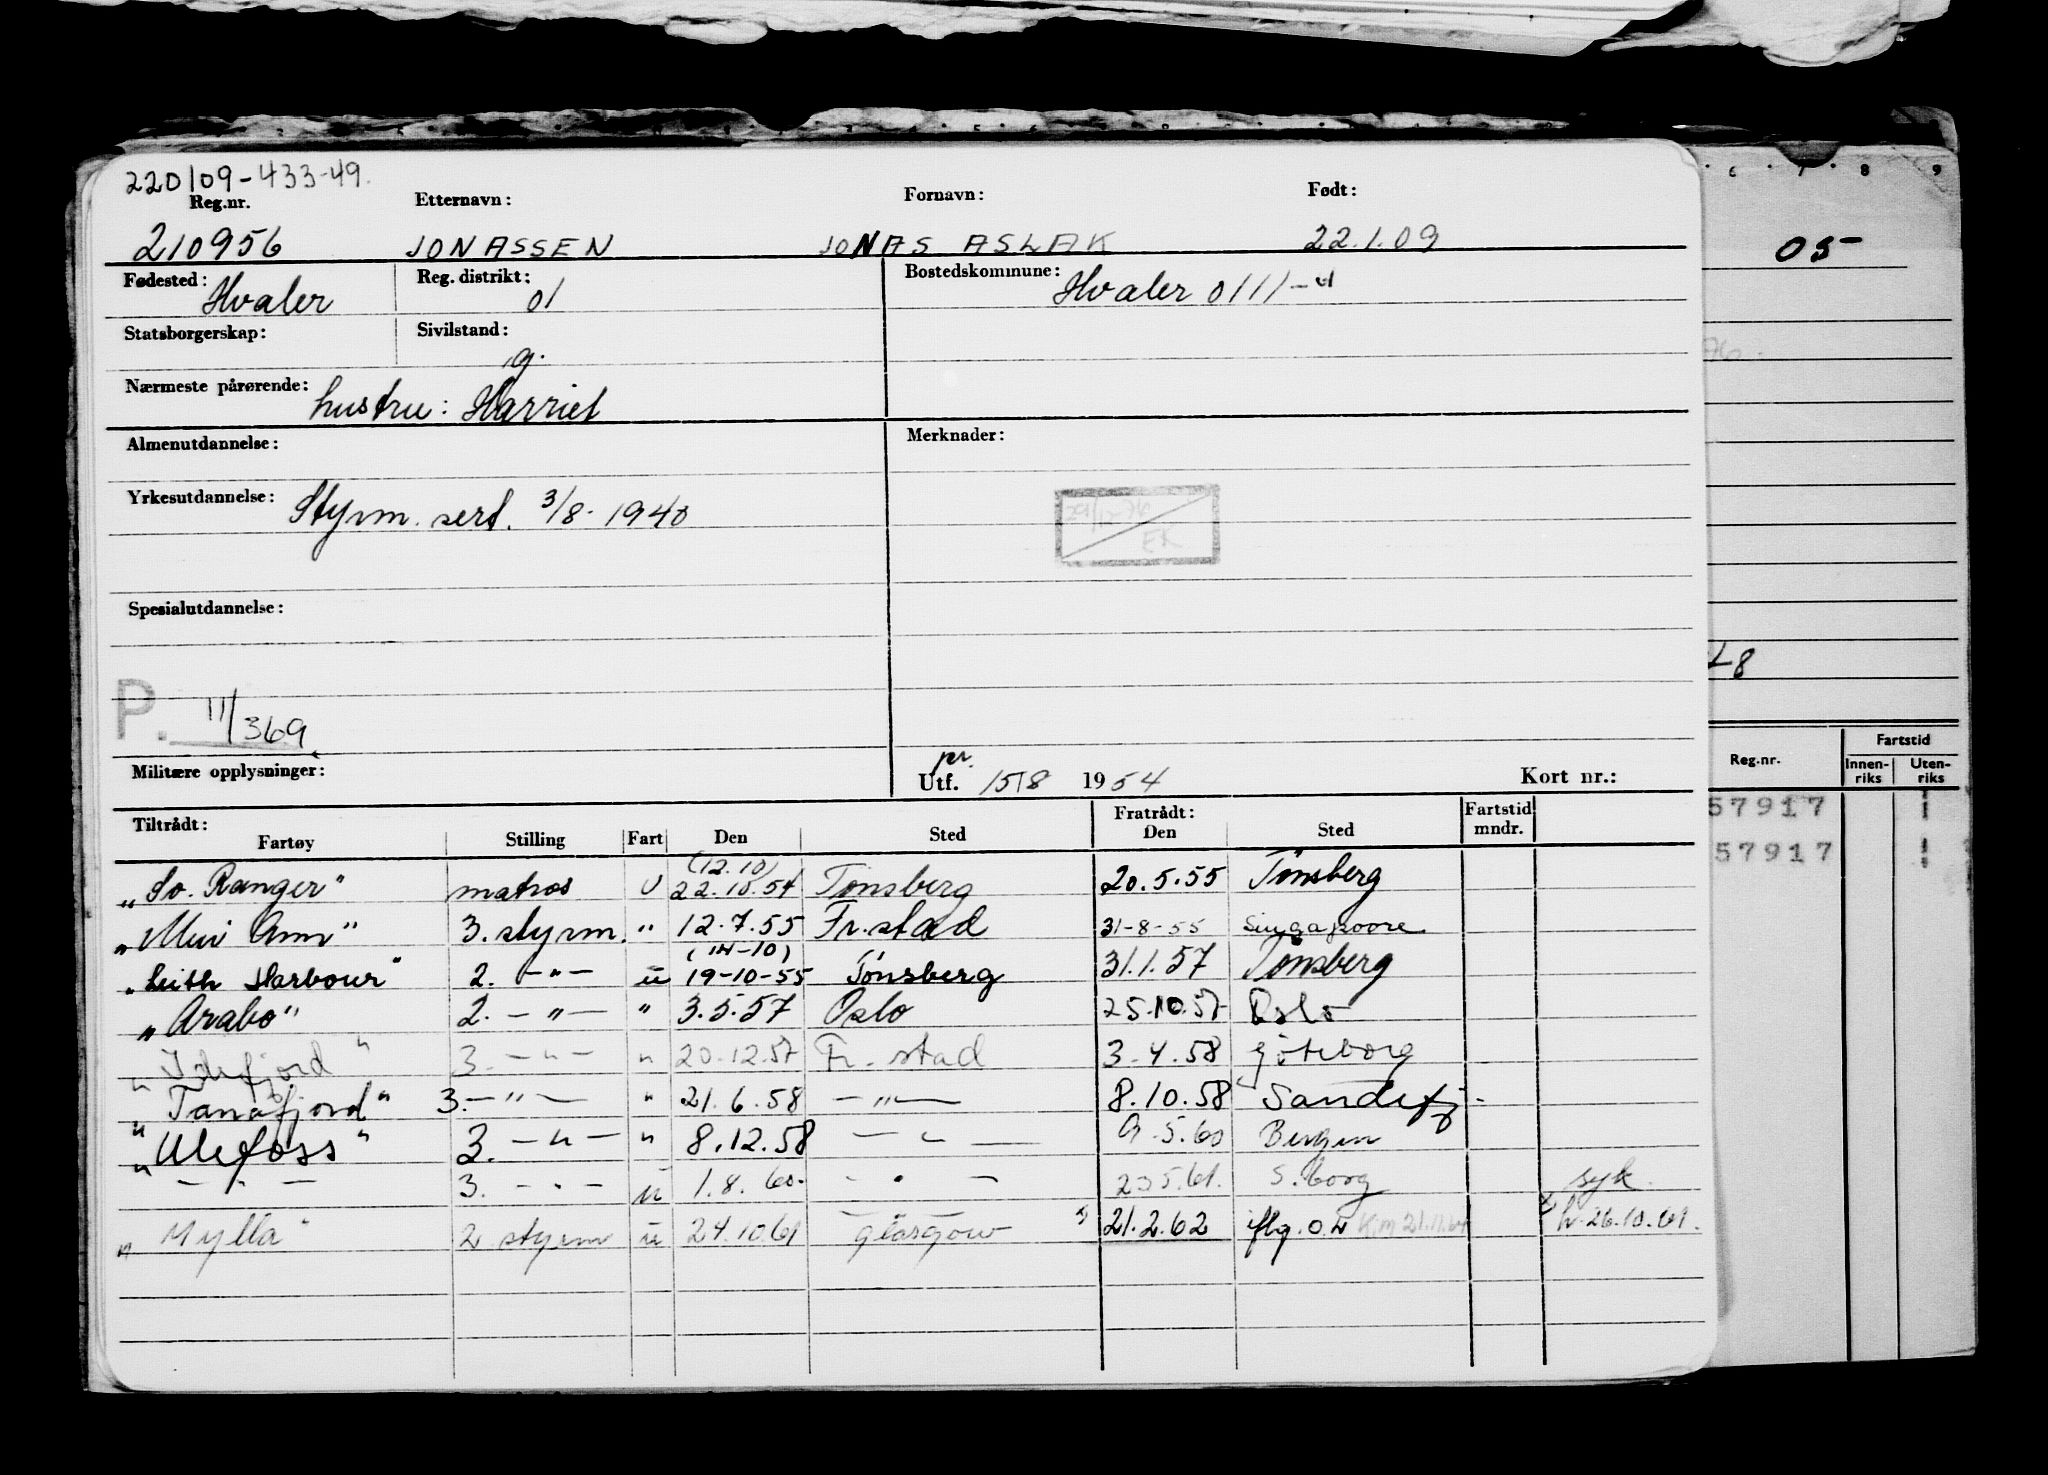 220109-433-49.
Reg.nr. Etternavn: Fornavn: Født:
210956 JONASSEN JONAS ASLAK 22.1.09
Fødested: Hvaler Reg. distrikt: 01 Bostedskommune: Hvaler 0111
Statsborgerskap: Sivilstand: g.
Nærmeste pårørende: hustru: Harriet
Almenutdannelse: Merknader:
Yrkesutdannelse: Styrm. sert. 3/8. 1940
29/12-76 EK
Spesialutdannelse:
P. 11/369
Militære opplysninger: pr. Utf. 15/8 1954 Kort nr.:
Tiltrådt: Fratrådt: Fartstid mndr.
Fartøy Stilling Fart Den Sted Den Sted
(12.10)
"So. Ranger" matros U 22.10.54 Tønsberg 20.5.55 Tønsberg
"Mui Ann" 3. styrm. " 12.7.55 Fr.stad 31-8-55 Singapoore
(14-10)
"Leith Harbour" 2. -"- u 19-10-55 Tønsberg 31.1.57 Tønsberg
"Arabo" 2. -"- " 3.5.57 Oslo 25.10.57 Oslo
"Idefjord" 3. -"- " 20.12.57 Fr.stad 3.4.58 Göteborg
"Tanafjord" 3. -"- " 21.6.58 -"- 8.10.58 Sandefj.
"Ulefoss" 3. -"- " 8.12.58 -"- 9.5.60 Bergen
-"- 3. -"- u 1.8.60. -"- 23.5.61. S.borg syk.
"Mylla" 2. styrm u 24.10.61 Glasgow x) 21.2.62 iflg. O.L KM 21.11.61 x h. 26.10.61.
05
48
Reg.nr. Fartstid
Innenriks Utenriks
57917
57917